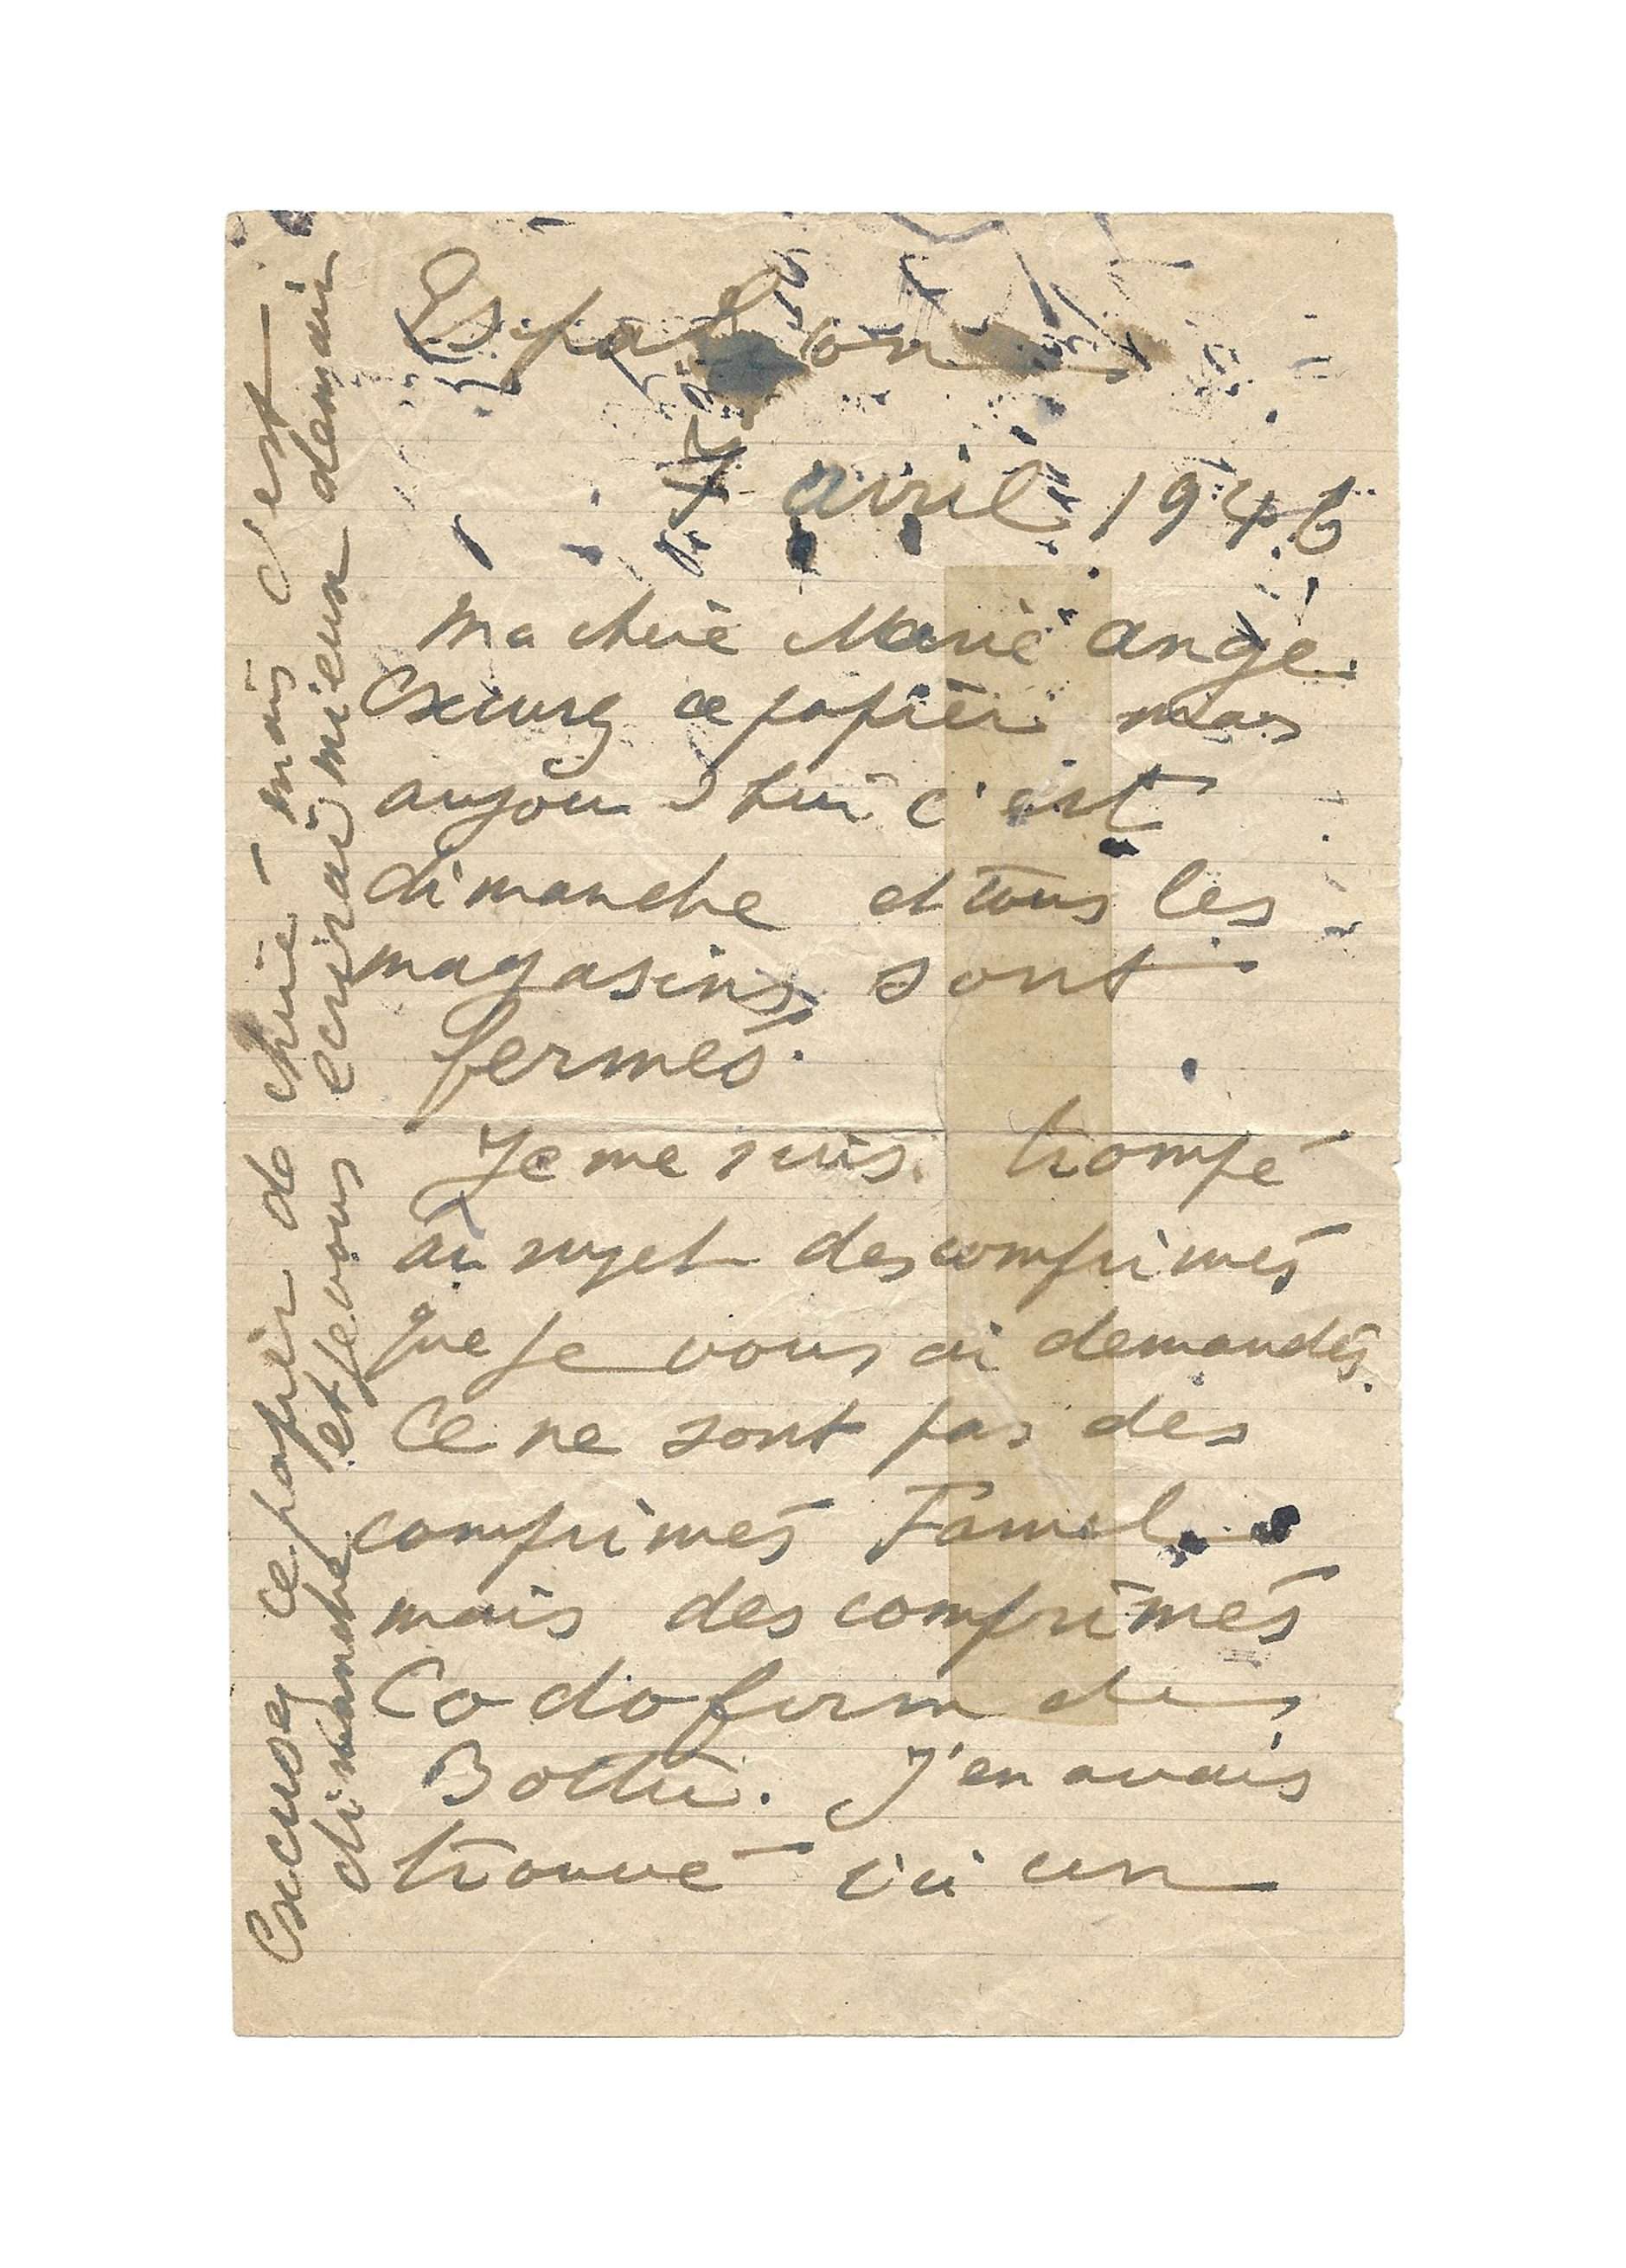 Espalion
7 avril 1946
Ma cherie Marie ange
Excusez ce papier mais
aujourd'hui c'est
dimanche et tous les
magasins sont
fermés.
Je me suis trompé
au sujet des comprimés
que je vous ai demandés.
Ce ne sont pas des
comprimés Famel
mais des comprimés
Codoform de
Bottu. J'en avais
trouvé ici un
Excusez ce papier de mais c'est
dimanche et je vous ecrirai mieux demain